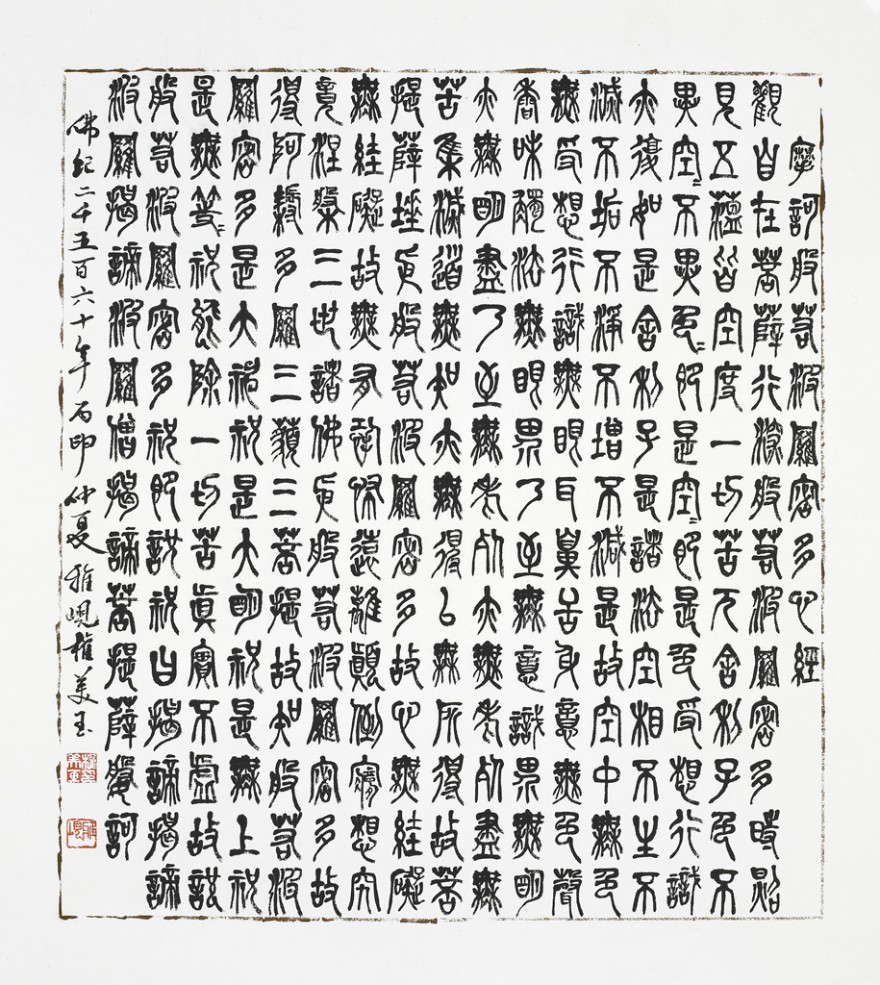 摩訶般若波羅密多心經
觀自在菩薩行深般若波羅密多時照
見五蘊皆空度一切苦厄舍利子色不
異空〻不異色〻即是空〻即是色受想行識
亦復如是舍利子是諸法空相不生不
滅不垢不淨不增不減是故空中無色
無受想行識無眼耳鼻舌身意無色聲
香味觸法無眼界乃至無意識界無明
亦無明盡乃至無老死亦無老死盡無
苦集滅道無知亦無得以無所得故菩
提薩埵依般若波羅密多故心無罣礙
無罣礙故無有恐怖遠離顛倒夢想究
竟涅槃三世諸佛依般若波羅密多故
得阿耨多羅三藐三菩提故知般若波
羅密多是大神祝是大明祝是無上祝
是無等〻祝能除一切苦真實不虛故說
般若波羅密多祝即說祝曰揭諦揭諦
波羅揭諦波羅僧揭諦菩提薩婆訶
佛紀二千五百六十年 丙申 仲夏 雅峴 權美玉
權美玉
雅峴